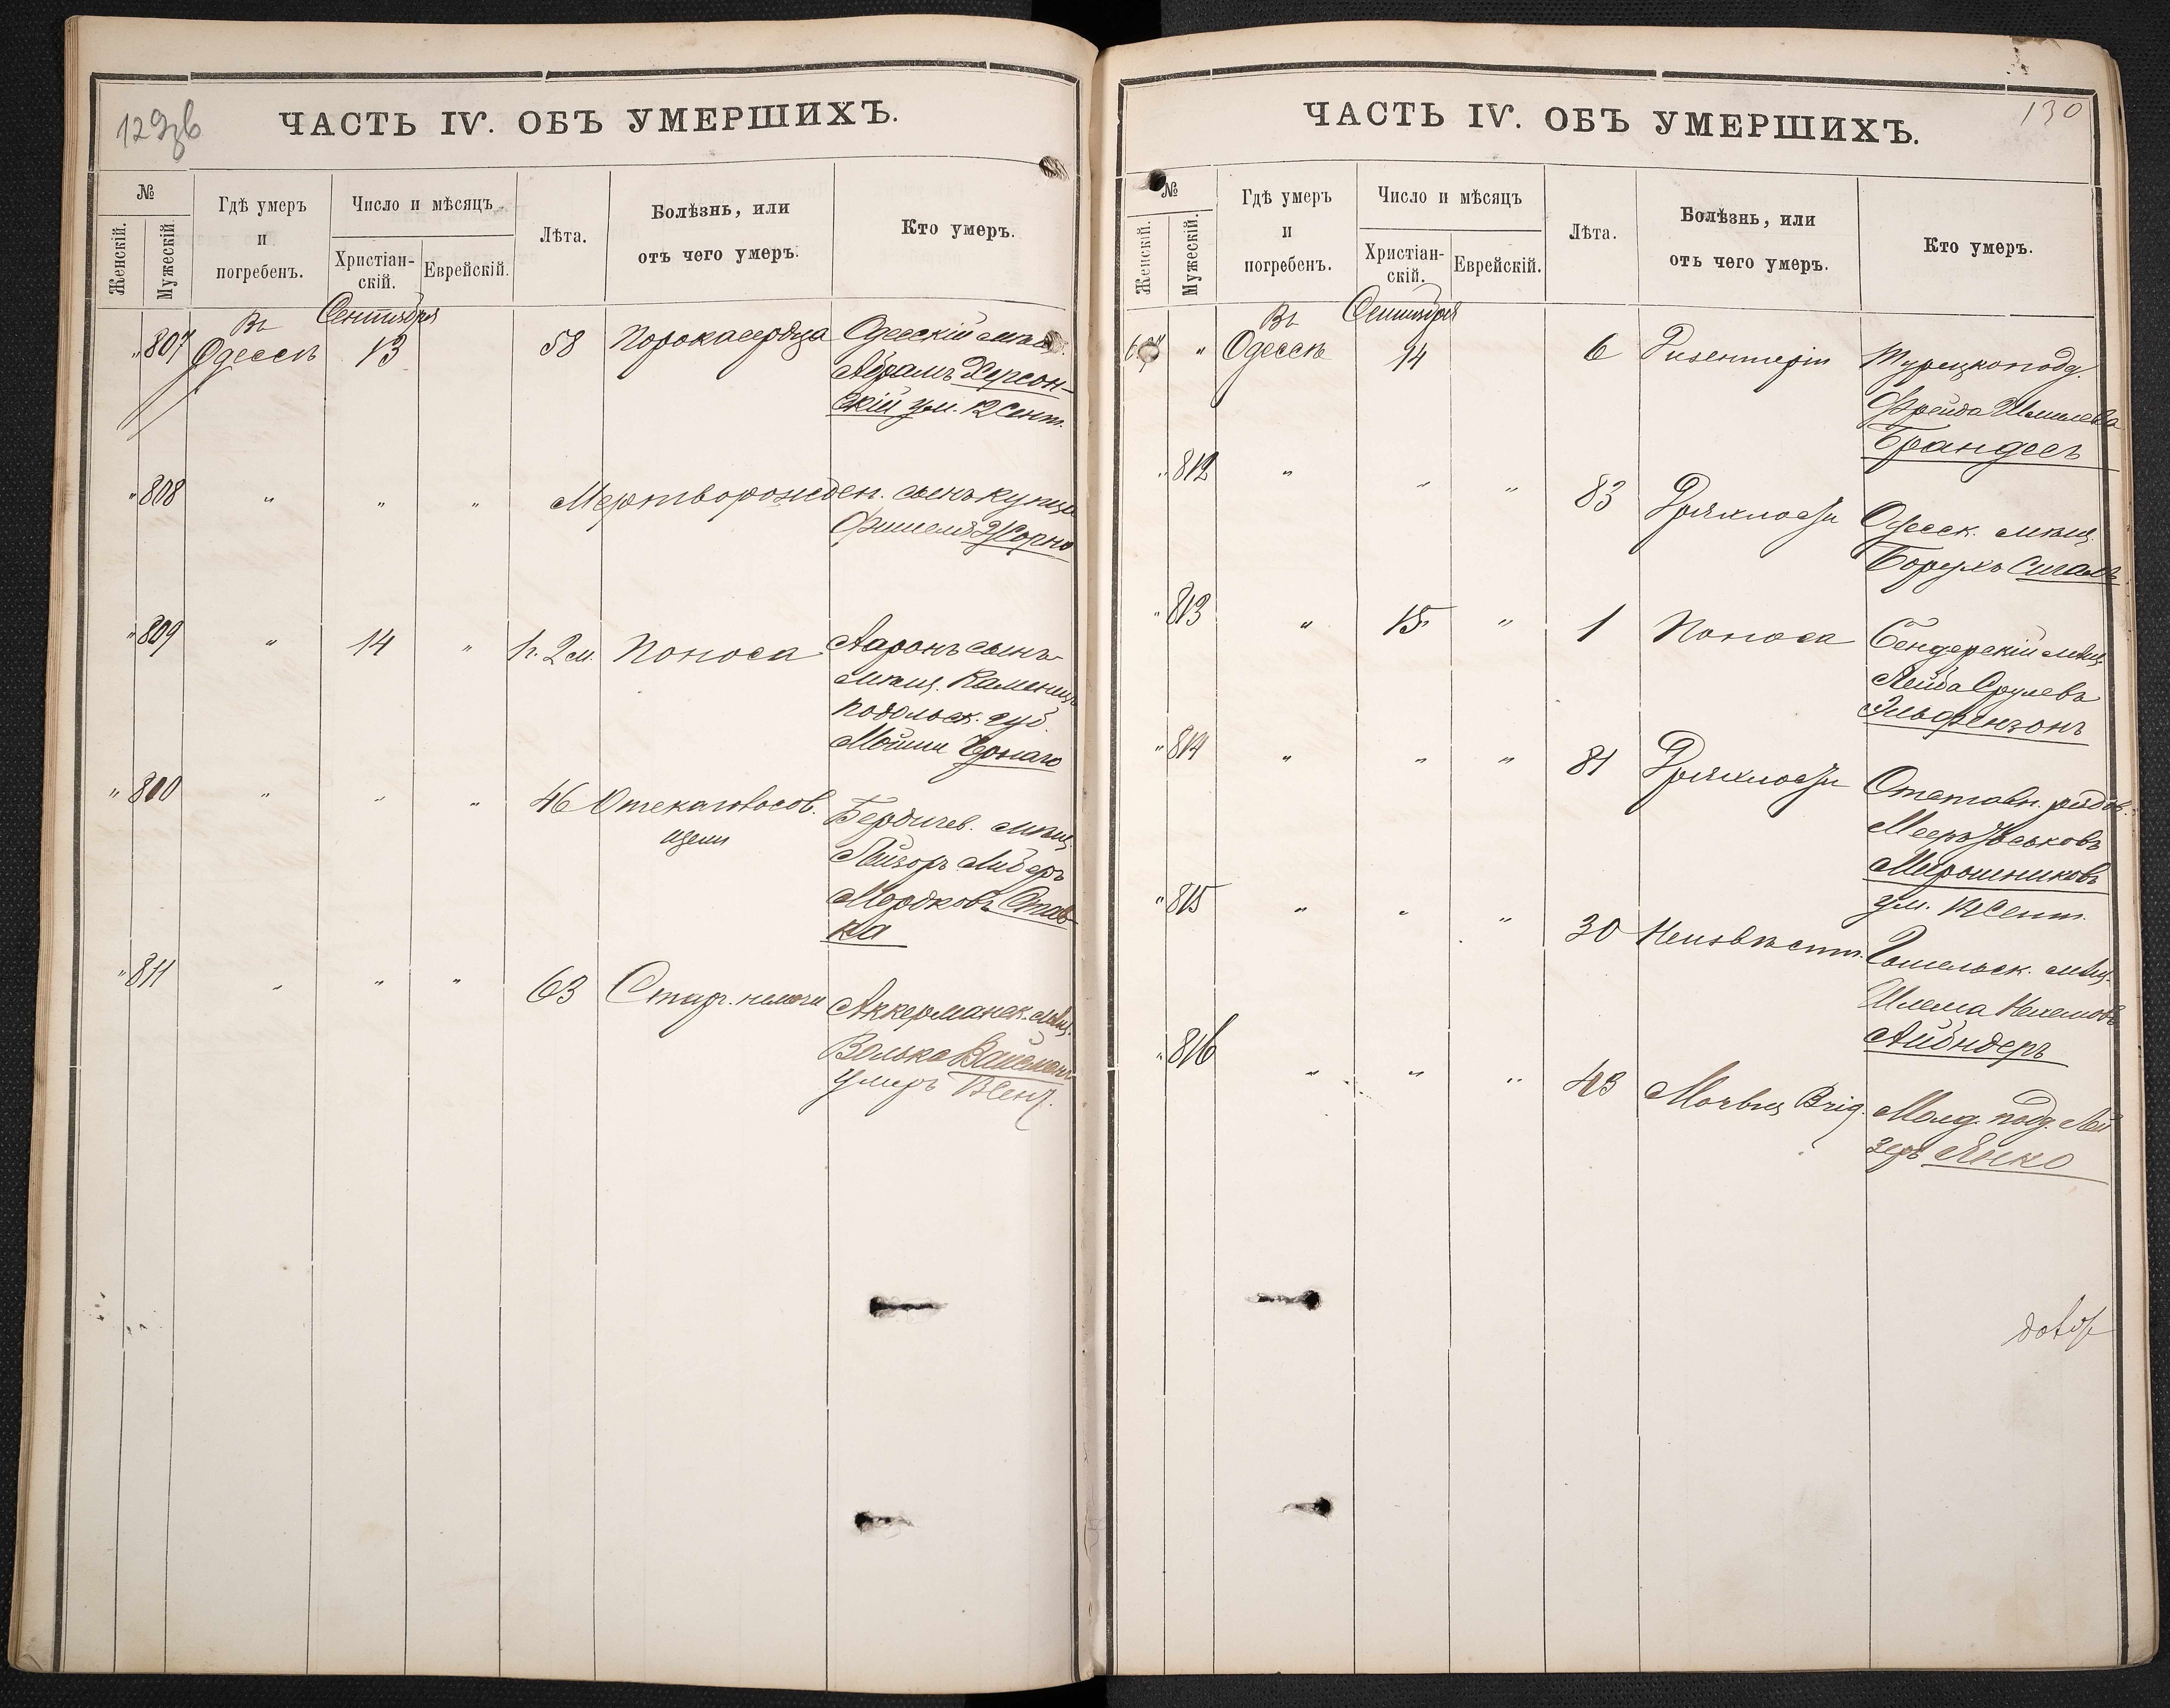 129зв
ЧАСТЬ IV. ОБЪ УМЕРШИХЪ.
№
Женскій.
Мужескій
Гдѣ умеръ
и
погребенъ.
Число и мѣсяцъ
Христіан-
скій.
Еврейскій.
Лѣта.
Болѣзнь, или
отъ чего умеръ.
Кто умеръ.
Въ Сентября
" 807 Одессѣ 13 58 Порока сердца Одесскій мѣщ.
Абрамъ Херсон-
скій ум. 12 Сент.
" 808 " " " Мертворожден. сынъ купца
Фишеля
" 809 " 14 " 1 г. 2 м. Поноса Ааронъ сынъ
мѣщ. Каменец
Подольск. губ.
Мошки Чернаго
" 810 " " " 46 Отека головосов. Бердичев. мѣщ.
Лейзоръ Либеръ
Мордковъ Став-
ка
" 811 " " " 63 Стар. немочи Аккерманск. мѣщ.
Волько
умеръ 13 Сент.
130
ЧАСТЬ IV. ОБЪ УМЕРШИХЪ.
№
Женскій.
Мужескій.
Гдѣ умеръ
и
погребенъ.
Число и мѣсяцъ
Христіан-
скій.
Еврейскій.
Лѣта.
Болѣзнь, или
отъ чего умеръ.
Кто умеръ.
Въ Сентября
" Одессѣ 14 6 Дизентеріи Турецкопод.
Фрейда Шмилева
Брандесъ
" 812 " " " 83 Дряхлости Одесск. мѣщ.
Борухъ Сигалъ
" 813 " 15 " 1 Поноса Бендерскій мѣщ.
Лейба Срулевъ
Эльфензонъ
" 814 " " " 81 Дряхлости Отставн. рядов.
Мееръ Іоськовъ
Мирошниковъ
ум. 12 Сент.
" 815 " " " 30 Неизвѣстн. Гомельск. мѣщ.
Шлема Нехемовъ
Айбиндеръ
" 816 " " " 43 Morbus Brig. Молд. подд. Лей
зеръ Янко